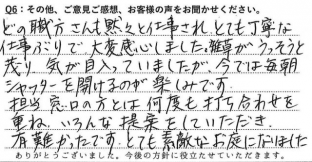 Q6：その他、ご意見ご感想、お客様の声をお聞かせください。
どの職方さんも黙々と仕事され、とても丁寧な
仕事ぶりで、大変感心しました。雑草がうっそうと
茂り、気が目入っていましたが、今では毎朝
シャッターを開けるのが楽しみです。
担当窓口の方とは何度も打ち合わせを
重ね、いろんな提案をしていただき、
有難かったです。とても素敵なお庭になりました
ありがとうございました。今後の方針に役立たせていただきます。